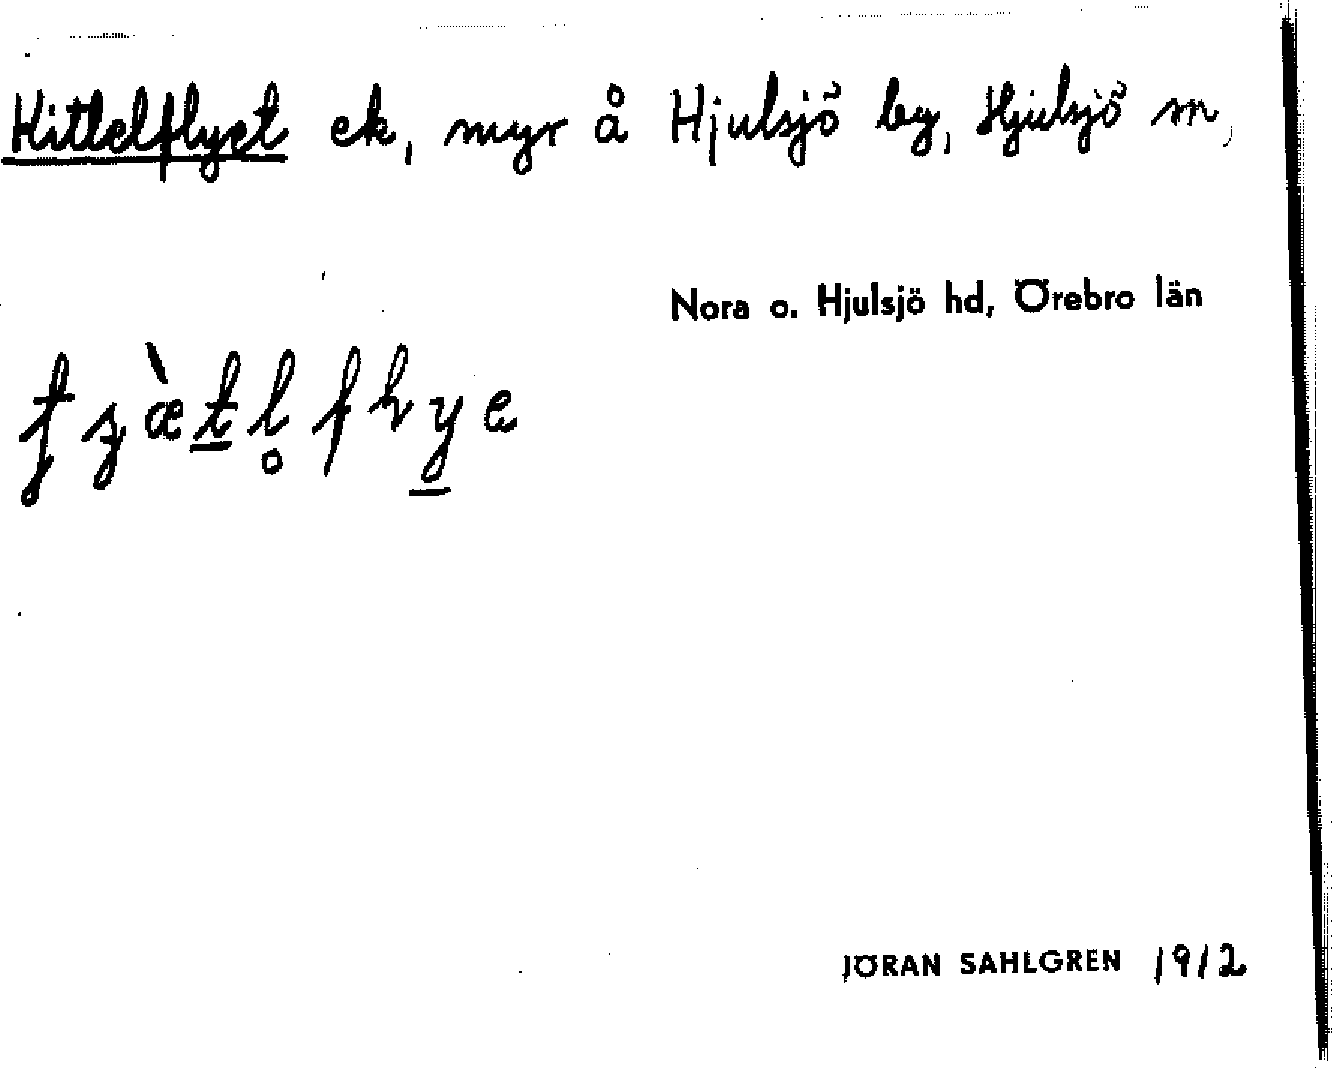 Kittelflyet ek, myr å Hjulsjö by, Hjulsjö sn,
Nora o. Hjulsjö hd, Örebro län
JÖRAN SAHLGREN 1912